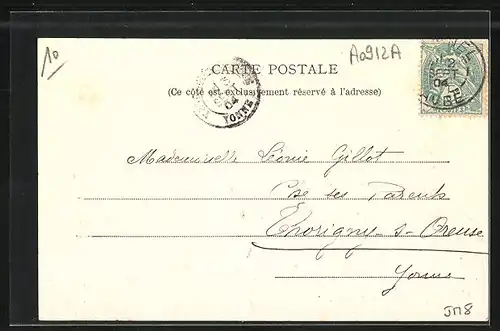 10
A0912A
CARTE POSTALE
(Ce côté est exclusivement réservé à l'adresse)
YONNE
04
12
04
AUBE
Mademoiselle Léonie Gillot
Chez ses Parents
Thorigny-s-Oreuse
Yonne
JM8